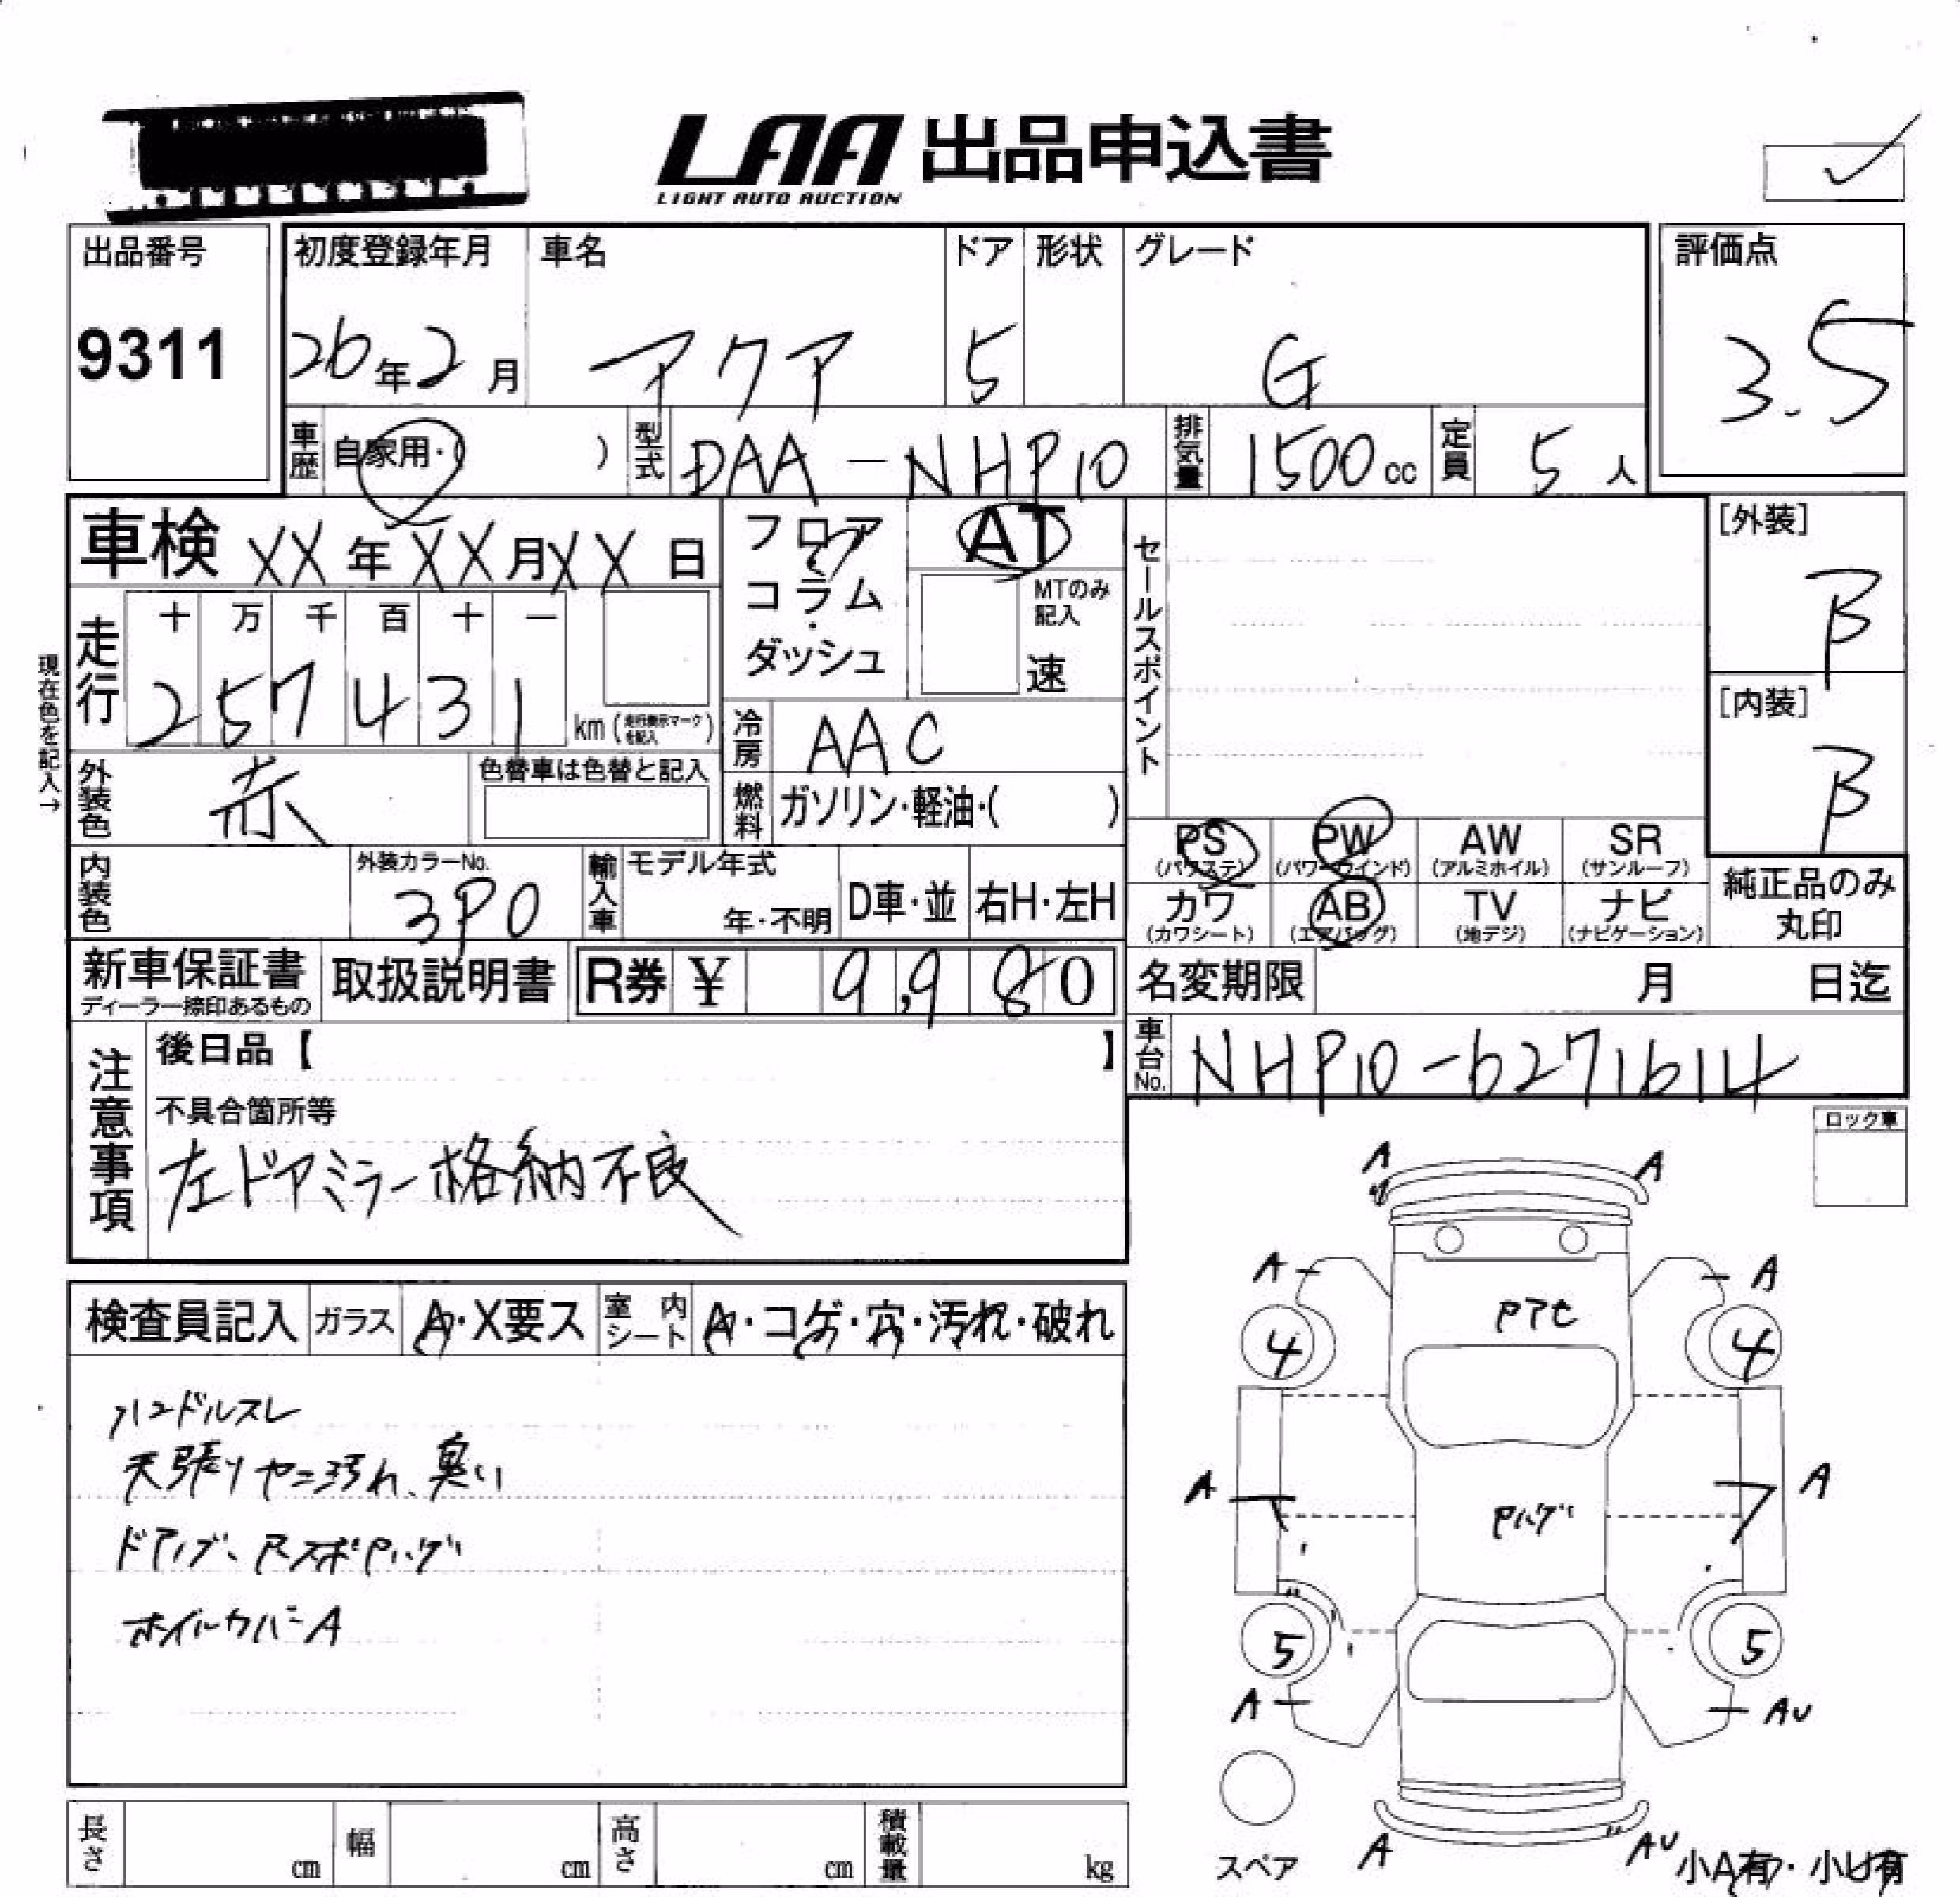 LAA 出品申込書
LIGHT AUTO AUCTION
出品番号
9311
初度登録年月
26年2月
車名
アクア
ドア
5
形状
グレード
G
評価点
3.5
車歴
自家用・( )
型式
DAA-NHP10
排気量
1500cc
定員
5人
車検 XX年XX月XX日
フロア
コラム
・
ダッシュ
AT
MTのみ
記入
速
セールスポイント
[外装]
B
[内装]
B
現在色を記入→
走行
十 万 千 百 十 一
2 5 7 4 3 1
km (走行表示マークを記入)
冷房
AAC
外装色
赤
色替車は色替と記入
燃料
ガソリン・軽油・( )
PS
(パワステ)
PW
(パワーウインド)
AW
(アルミホイル)
SR
(サンルーフ)
カワ
(カワシート)
AB
(エアバッグ)
TV
(地デジ)
ナビ
(ナビゲーション)
純正品のみ
丸印
内装色
外装カラーNo.
3P0
輸入車
モデル年式
年・不明
D車・並
右H・左H
新車保証書
ディーラー捺印あるもの
取扱説明書
R券 ¥ 9,980
名変期限
月 日迄
車台No.
NHP10-6271614
注意事項
後日品【 】
不具合箇所等
左ドアミラー格納不良
ロック車
検査員記入
ガラス
A・X要ス
室内シート
A・コゲ・穴・汚れ・破れ
ハンドルスレ
天張りヤニ汚れ、臭い
ホイルカバーA
A
A
A
A
Pアセ
4
4
A
A
Pハゲ
5
5
A
AU
スペア
A
AU
小A有・小U有
長さ
cm
幅
cm
高さ
cm
積載量
kg